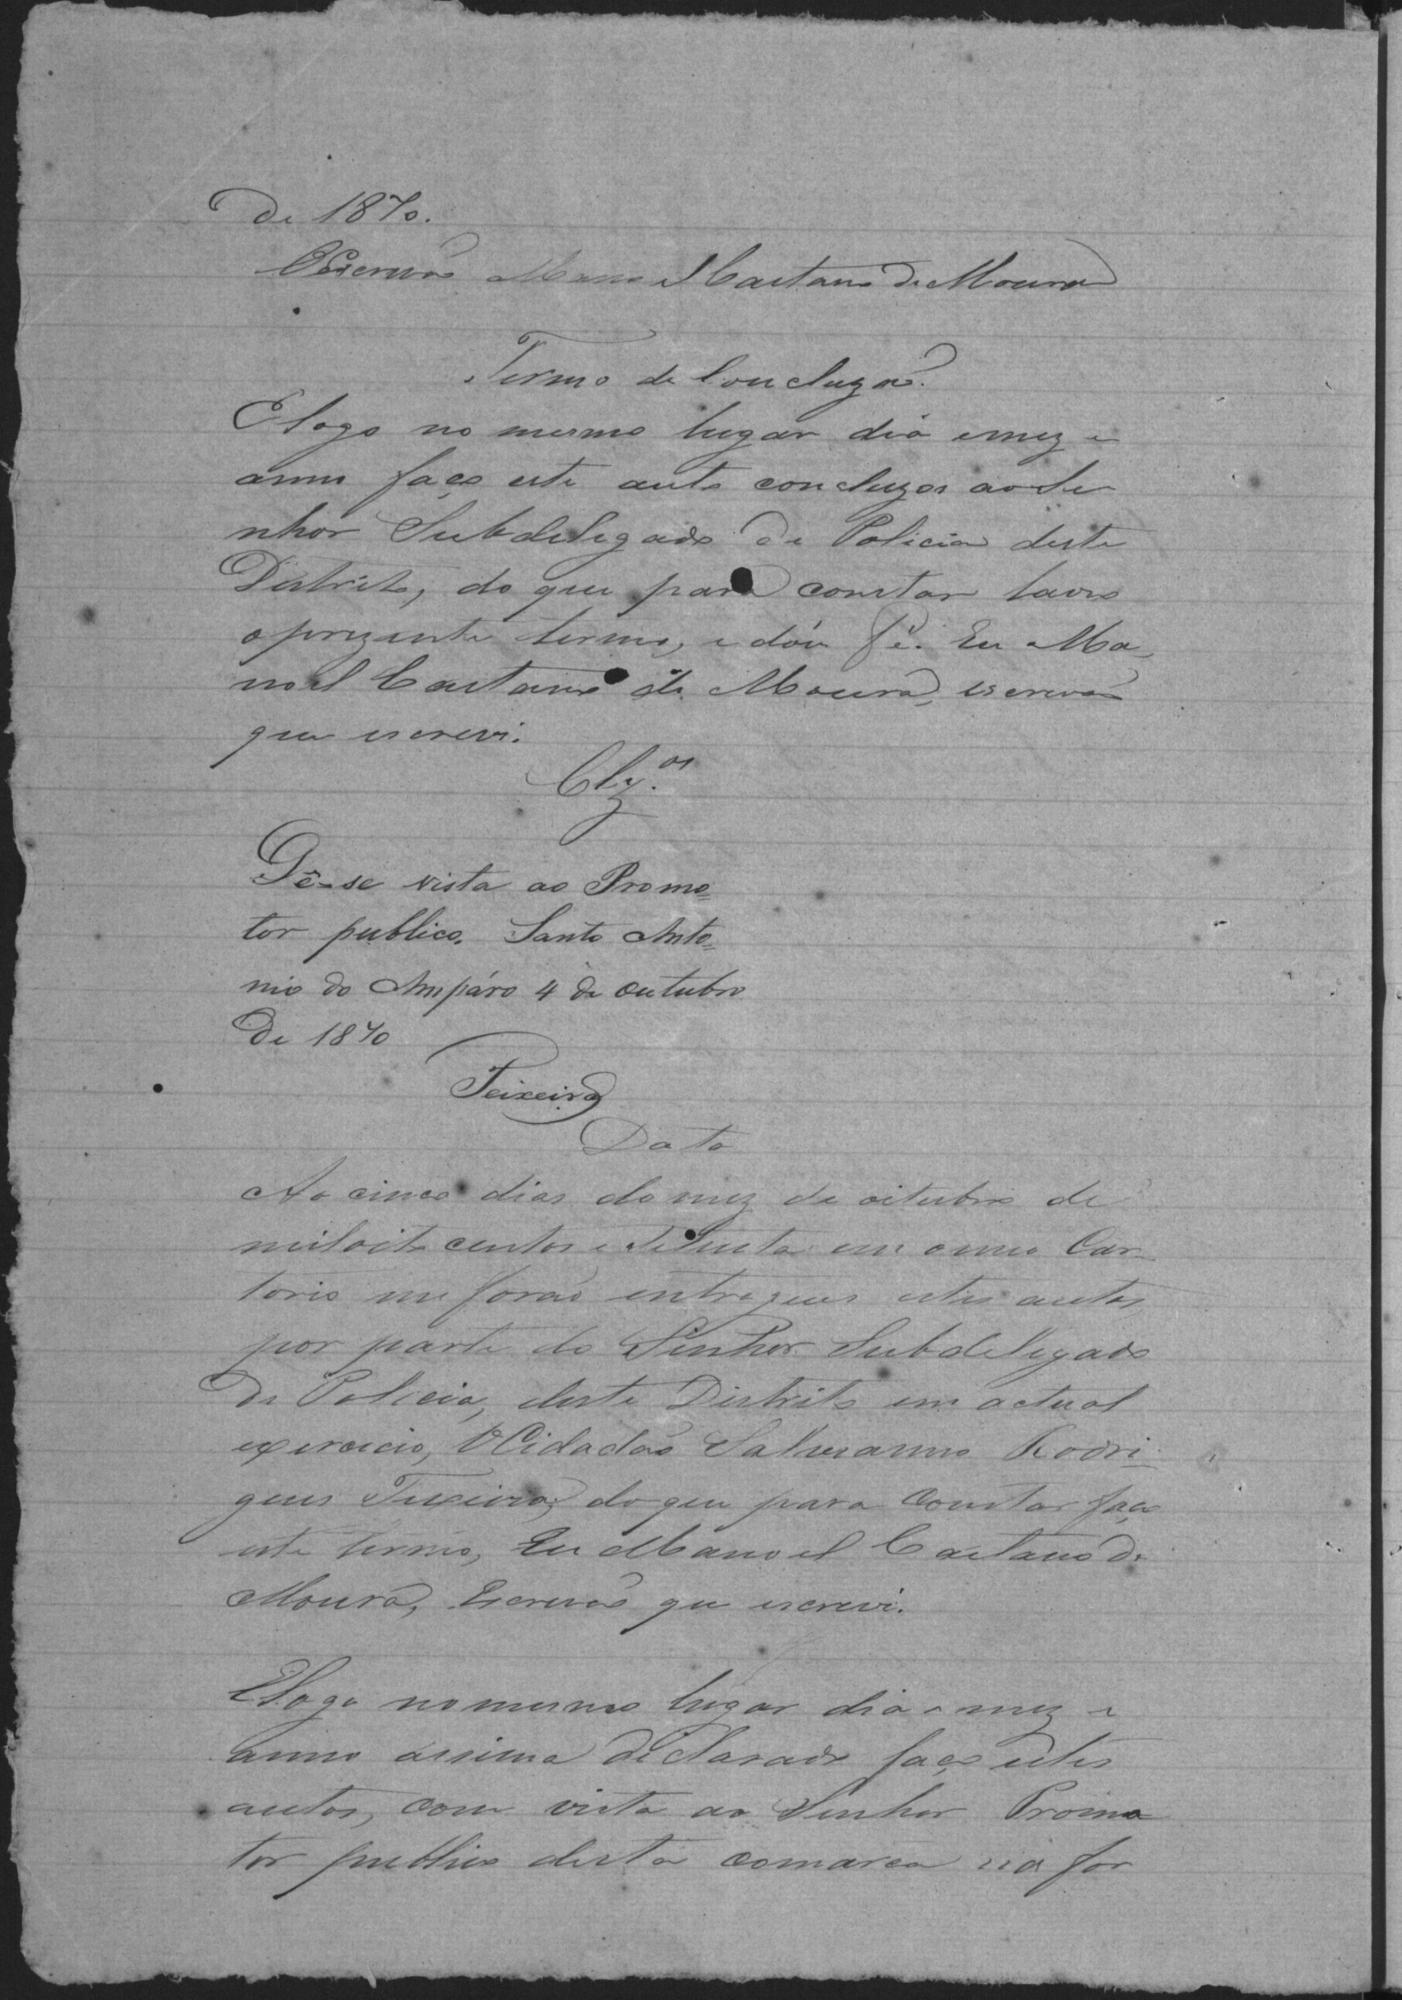 de 1870.
O Escrivão Manoel Caetano de Moura
Termo de Concluzão.
E logo no mesmo lugar dia e mez e
anno faço este auto concluzos ao Se
nhor Subdelegado de Policia deste
Districto, do que para constar lavro
o prezente termo, e dou fé. Eu Ma-
noel Caetano de Moura, escrivão
que escrevi.
Clz.os
Dê-se vista ao Promo=
tor publico. Santo Anto=
nio do Ampáro 4 de outubro
de 1870
Teixeira
Data
Ao cinco dias do mez de oitubro de
mil oito centos e setenta em o meu Car-
torio me forão entregues estes autos
por parte do Senhor Subdelegado
de Policia, deste Districto em actual
exercicio, O Cidadão Rodri-
gues Teixeira, do que para constar faço
este termo, Eu Manoel Caetano de
Moura, Escrivão que escrevi.
E logo no mesmo lugar dia e mez e
anno assima declarado faço estes
autos, com vista ao Senhor Promo
tor publico desta comarca na for